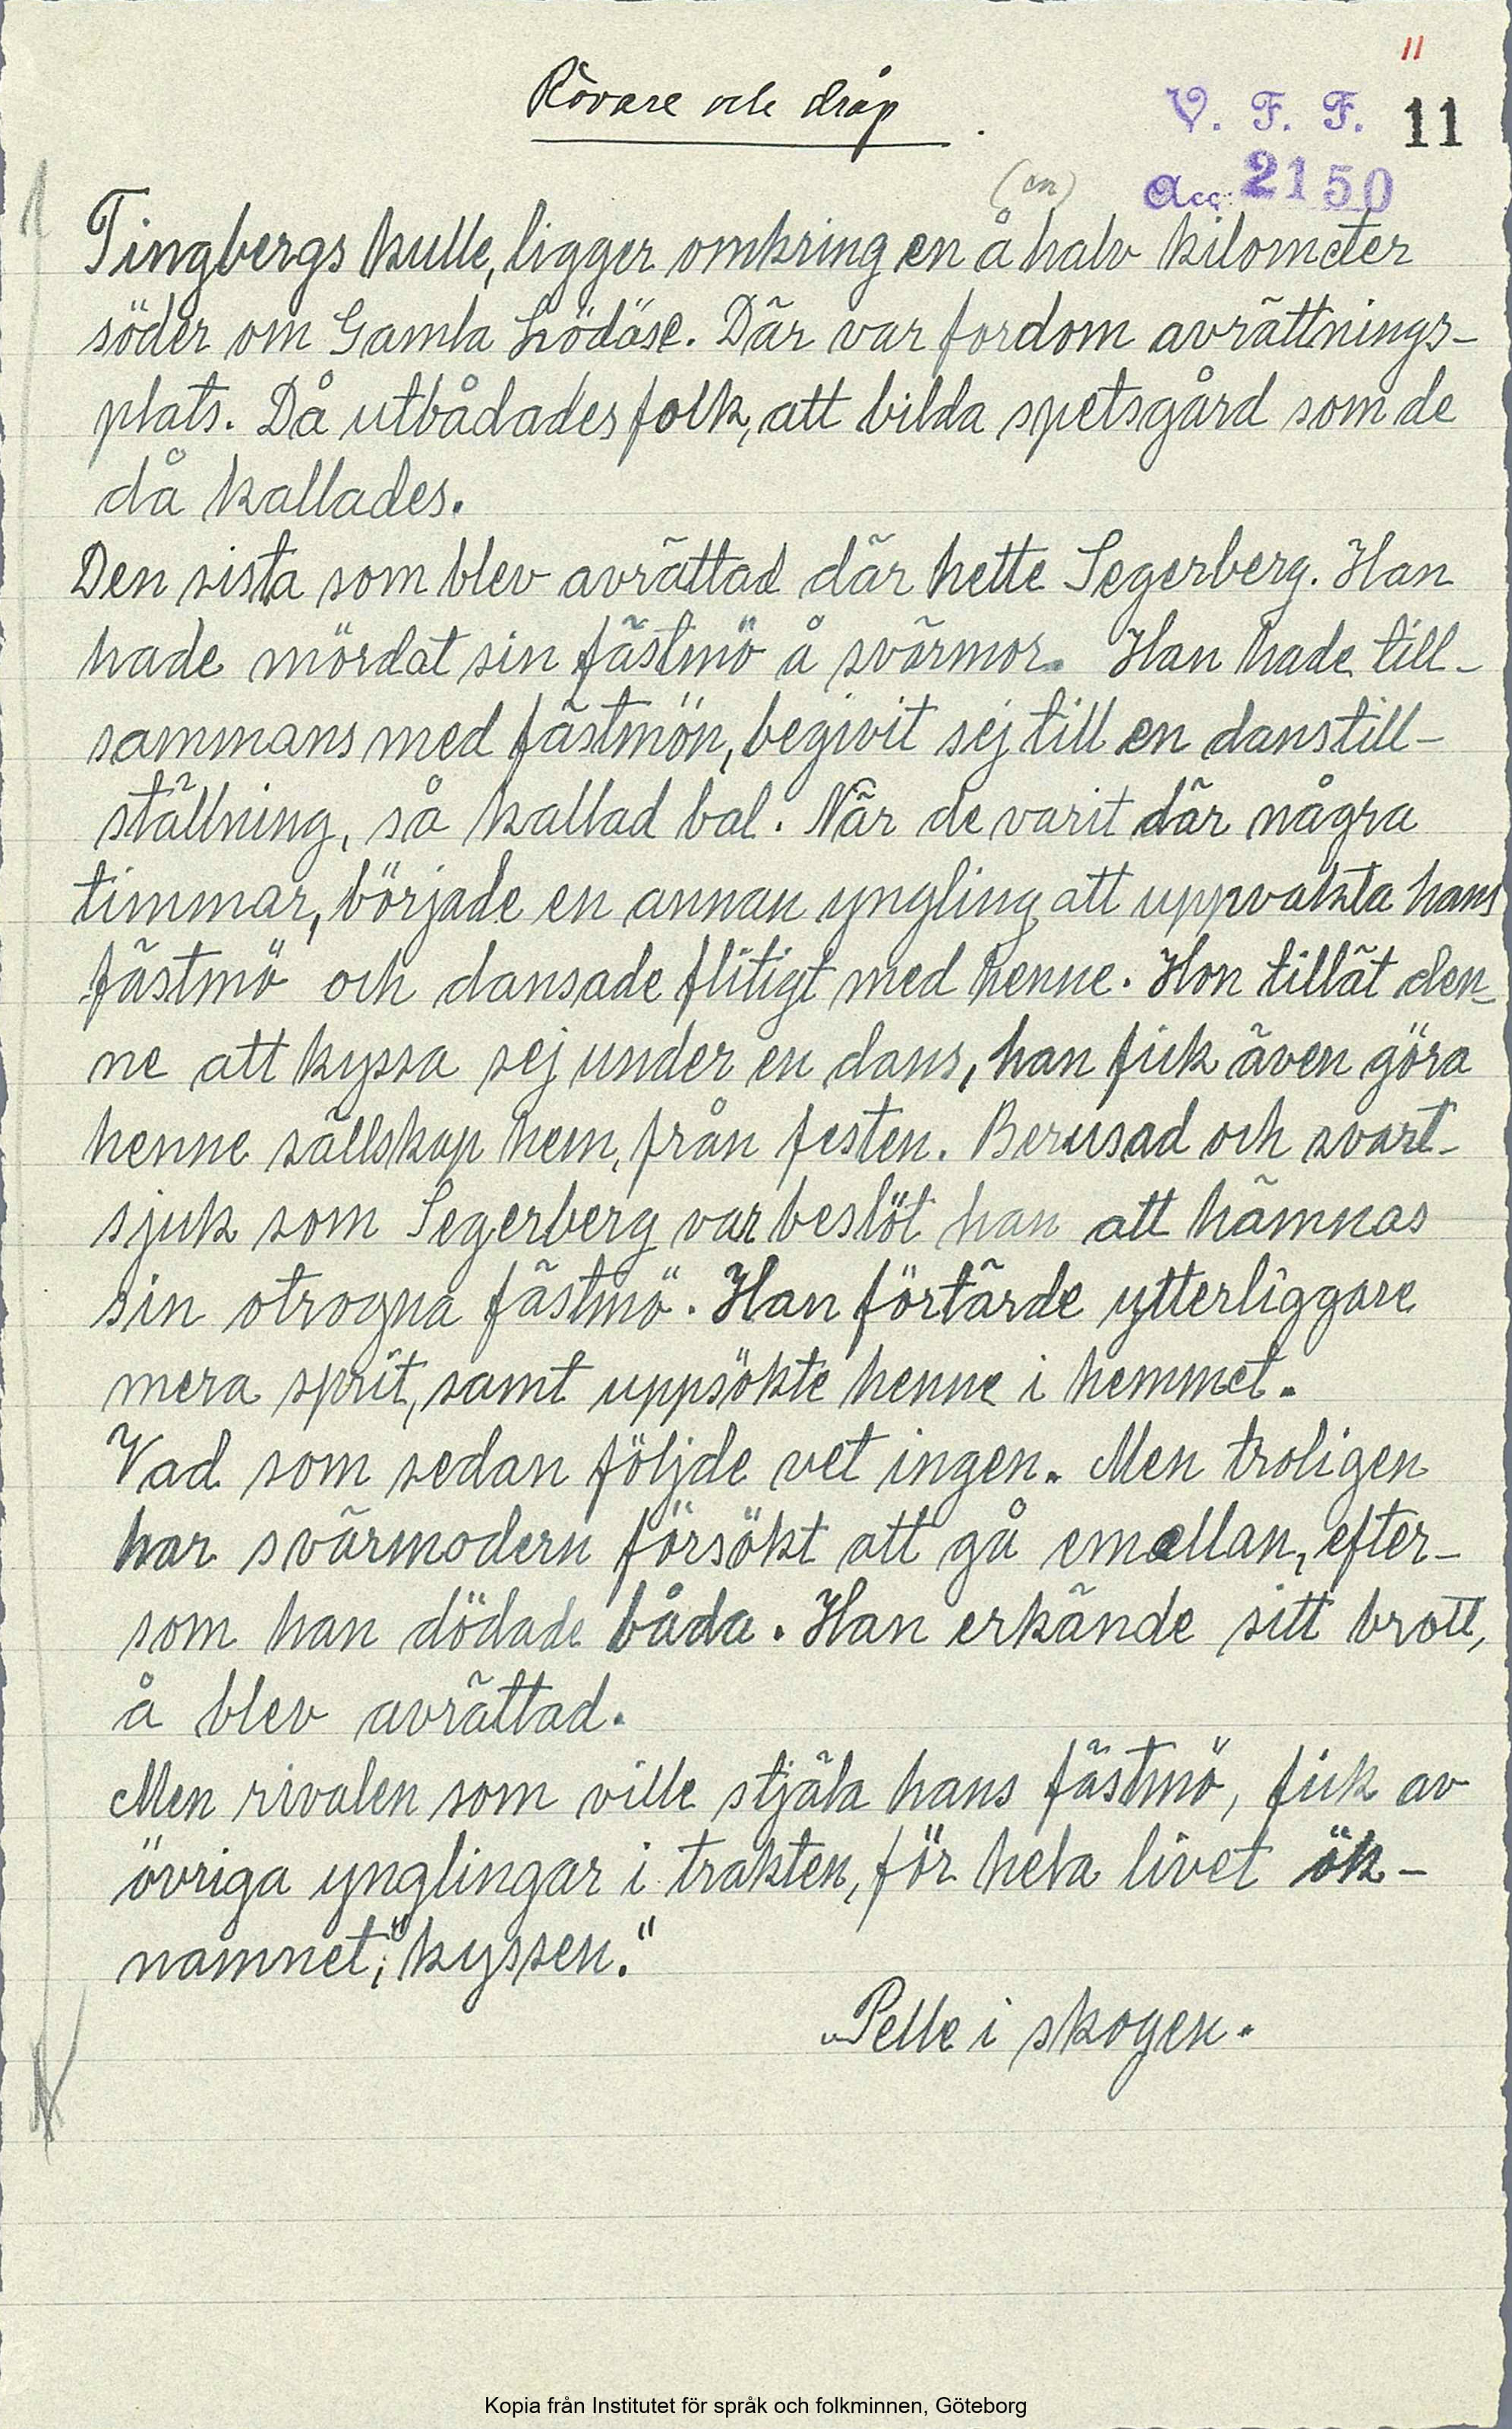 11
Rövare och dråp.
V. F. F. 11
Acc. 2150
(en)
Tingbergs kulle, ligger omkring en å halv kilometer
söder om Gamla Lödöse. Där var fordom avrättnings-
plats. Då utbådades folk, att bilda spetsgård som de
då kallades.
Den sista som blev avrättad där hette Segerberg. Han
hade mördat sin fästmö å svärmor. Han hade till-
sammans med fästmön, begivit sej till en danstill-
ställning, så kallad bal. När de varit där några
timmar, började en annan yngling att uppvakta hans
fästmö och dansade flitigt med henne. Hon tillät den-
ne att kyssa sej under en dans, han fick även göra
henne sällskap hem, från festen. Berusad och svart-
sjuk som Segerberg var beslöt han att hämnas
sin otrogna fästmö. Han förtärde ytterliggare
mera sprit, samt uppsökte henne i hemmet.
Vad som sedan följde vet ingen. Men troligen
har svärmodern försökt att gå emellan, efter-
som han dödade båda. Han erkände sitt brott,
å blev avrättad.
Men rivalen som ville stjäla hans fästmö, fick av
övriga ynglingar i trakten, för hela livet ök-
namnet, "kyssen."
"Pelle i skogen.
Kopia från Institutet för språk och folkminnen, Göteborg